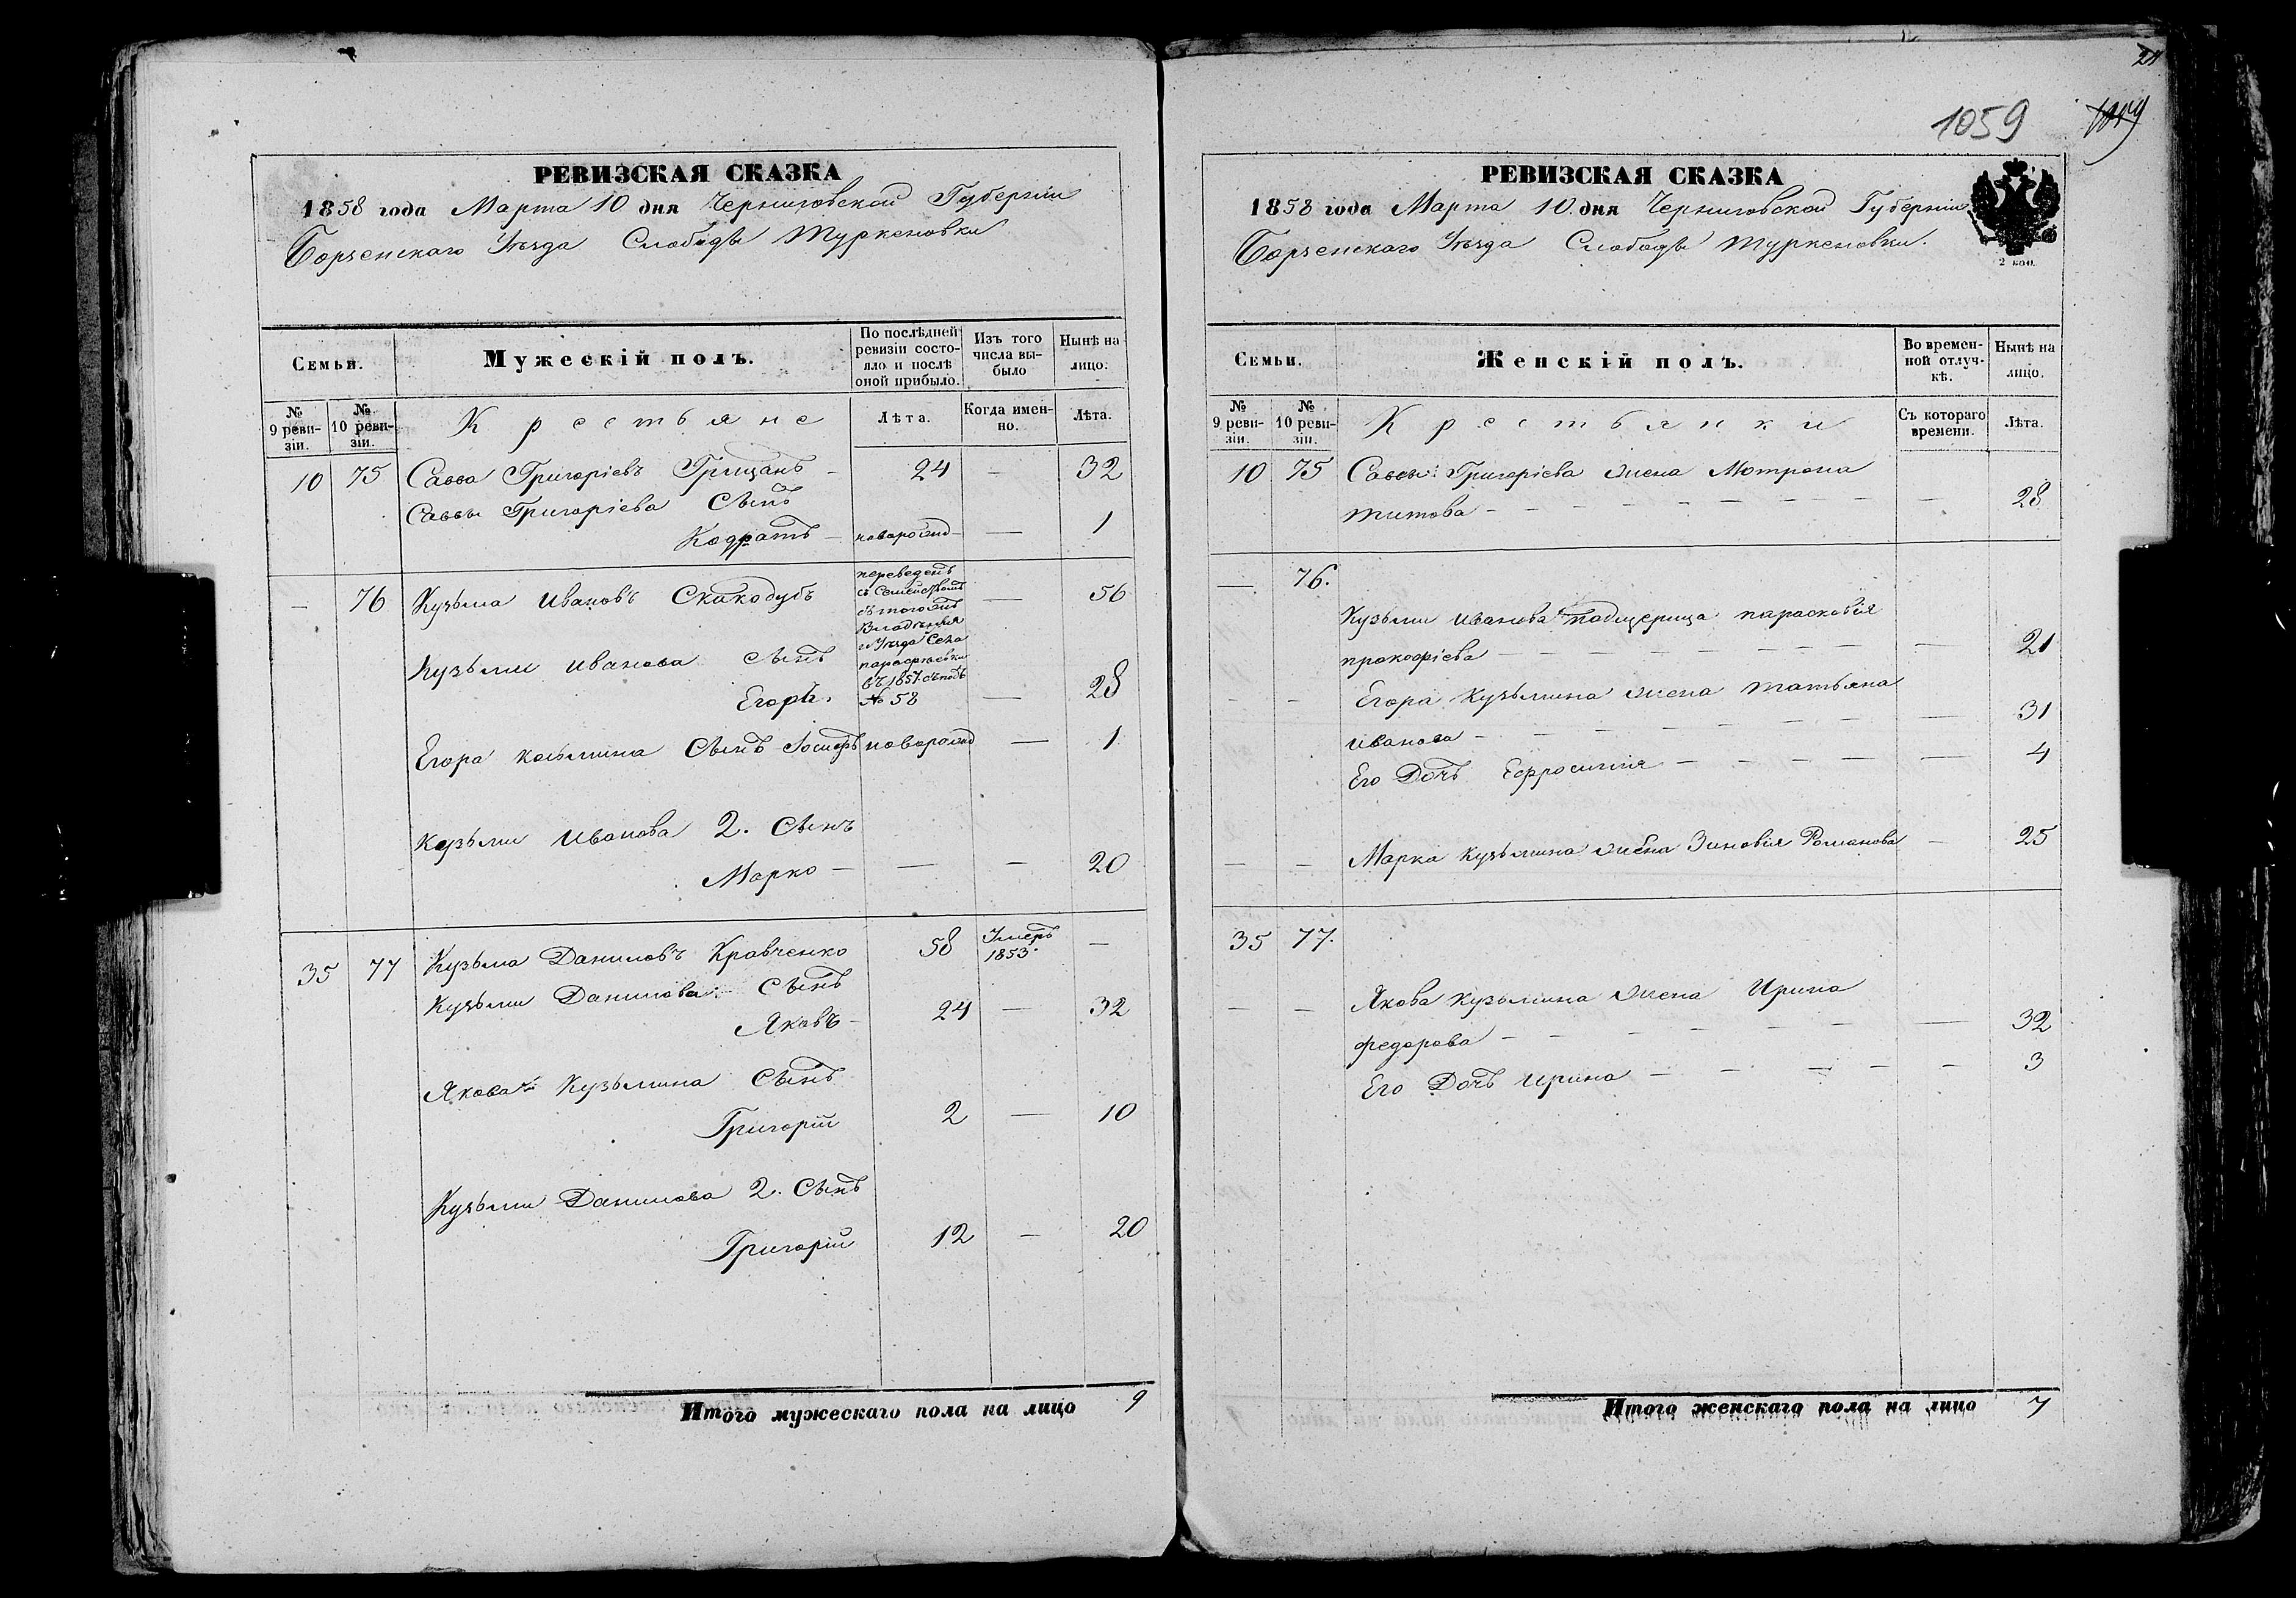 21
1059
РЕВИЗСКАЯ СКАЗКА
1858 года Марта 10 дня Черниговской Губерніи
Борзенскаго Уезда Слободы Туркеновки
Семьи.
Мужескій полъ.
По послѣдней ревизіи состо-
яло и послѣ
оной прибыло.
Изъ того
числа вы-
было
Нынѣ на
лицо.
№
9 реви-
зіи.
№
10 реви-
зіи.
Крестьяне
Лѣта.
Когда имен-
но.
Лѣта.
10 75 Савва Григоріевъ Грицанъ – 24 – 32
Саввы Григоріева Сынъ
Кодратъ – новорожд – — 1
— 76 Кузьма Ивановъ Скикодубъ — 56
переведенъ
съ Семействомъ
съ того же
Владѣнія
и Уѣзда Села
въ 1857 съ подъ
№ 58
Кузьми Иванова сынъ
Егоръ. — 28
Егора козьмина Сынъ Іосифъ новорожд — 1
Кузьми Иванова 2. Сынъ
Марко — — — 20
35 77 Кузьма Даниловъ Кравченко 58 Умеръ —
1853.
Кузьми Данилова Сынъ
Яковъ – 24 — 32
Якова Кузьмина Сынъ
Григорій 2 — 10
Кузьми Данилова 2. Сынъ
Григорій 12 — 20
Итого мужескаго пола на лицо 9
РЕВИЗСКАЯ СКАЗКА
1858 года Марта 10. дня Черниговской Губерніи
Борзенскаго Уезда Слободы Туркеновки.
2 коп.
Семьи.
Женскій полъ.
Во времен-
ной отлуч-
кѣ.
Нынѣ на
лицо.
№
9 реви-
зіи.
№
10 реви-
зіи.
Крестьянки
Съ котораго
времени.
Лѣта.
10 75 Саввы Григоріева жена Мотрона
Титова — — 28
— 76.
Кузьми Иванова падщерица парасковія
прокофіева — — 21
– – Егора Кузьмина жена татьяна
Иванова — — 31
Его Дочь Ефросинія — — 4
– – Марка Кузьмина жена Зиновія Романова – 25
35 77.
– – Якова Кузьмина жена Ирина
федорова — — 32
Его Дочь Ирина — — 3
Итого женскаго пола на лицо 7